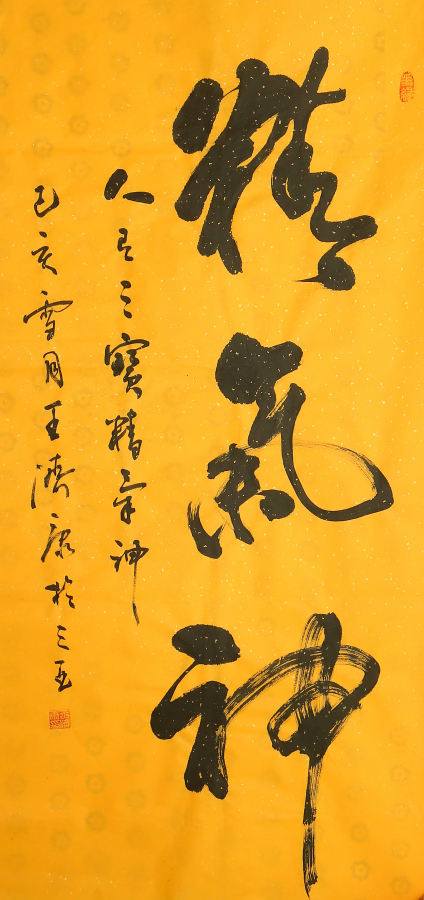 精氣神
人有三寶精氣神
己亥雪月王濟康於三亞